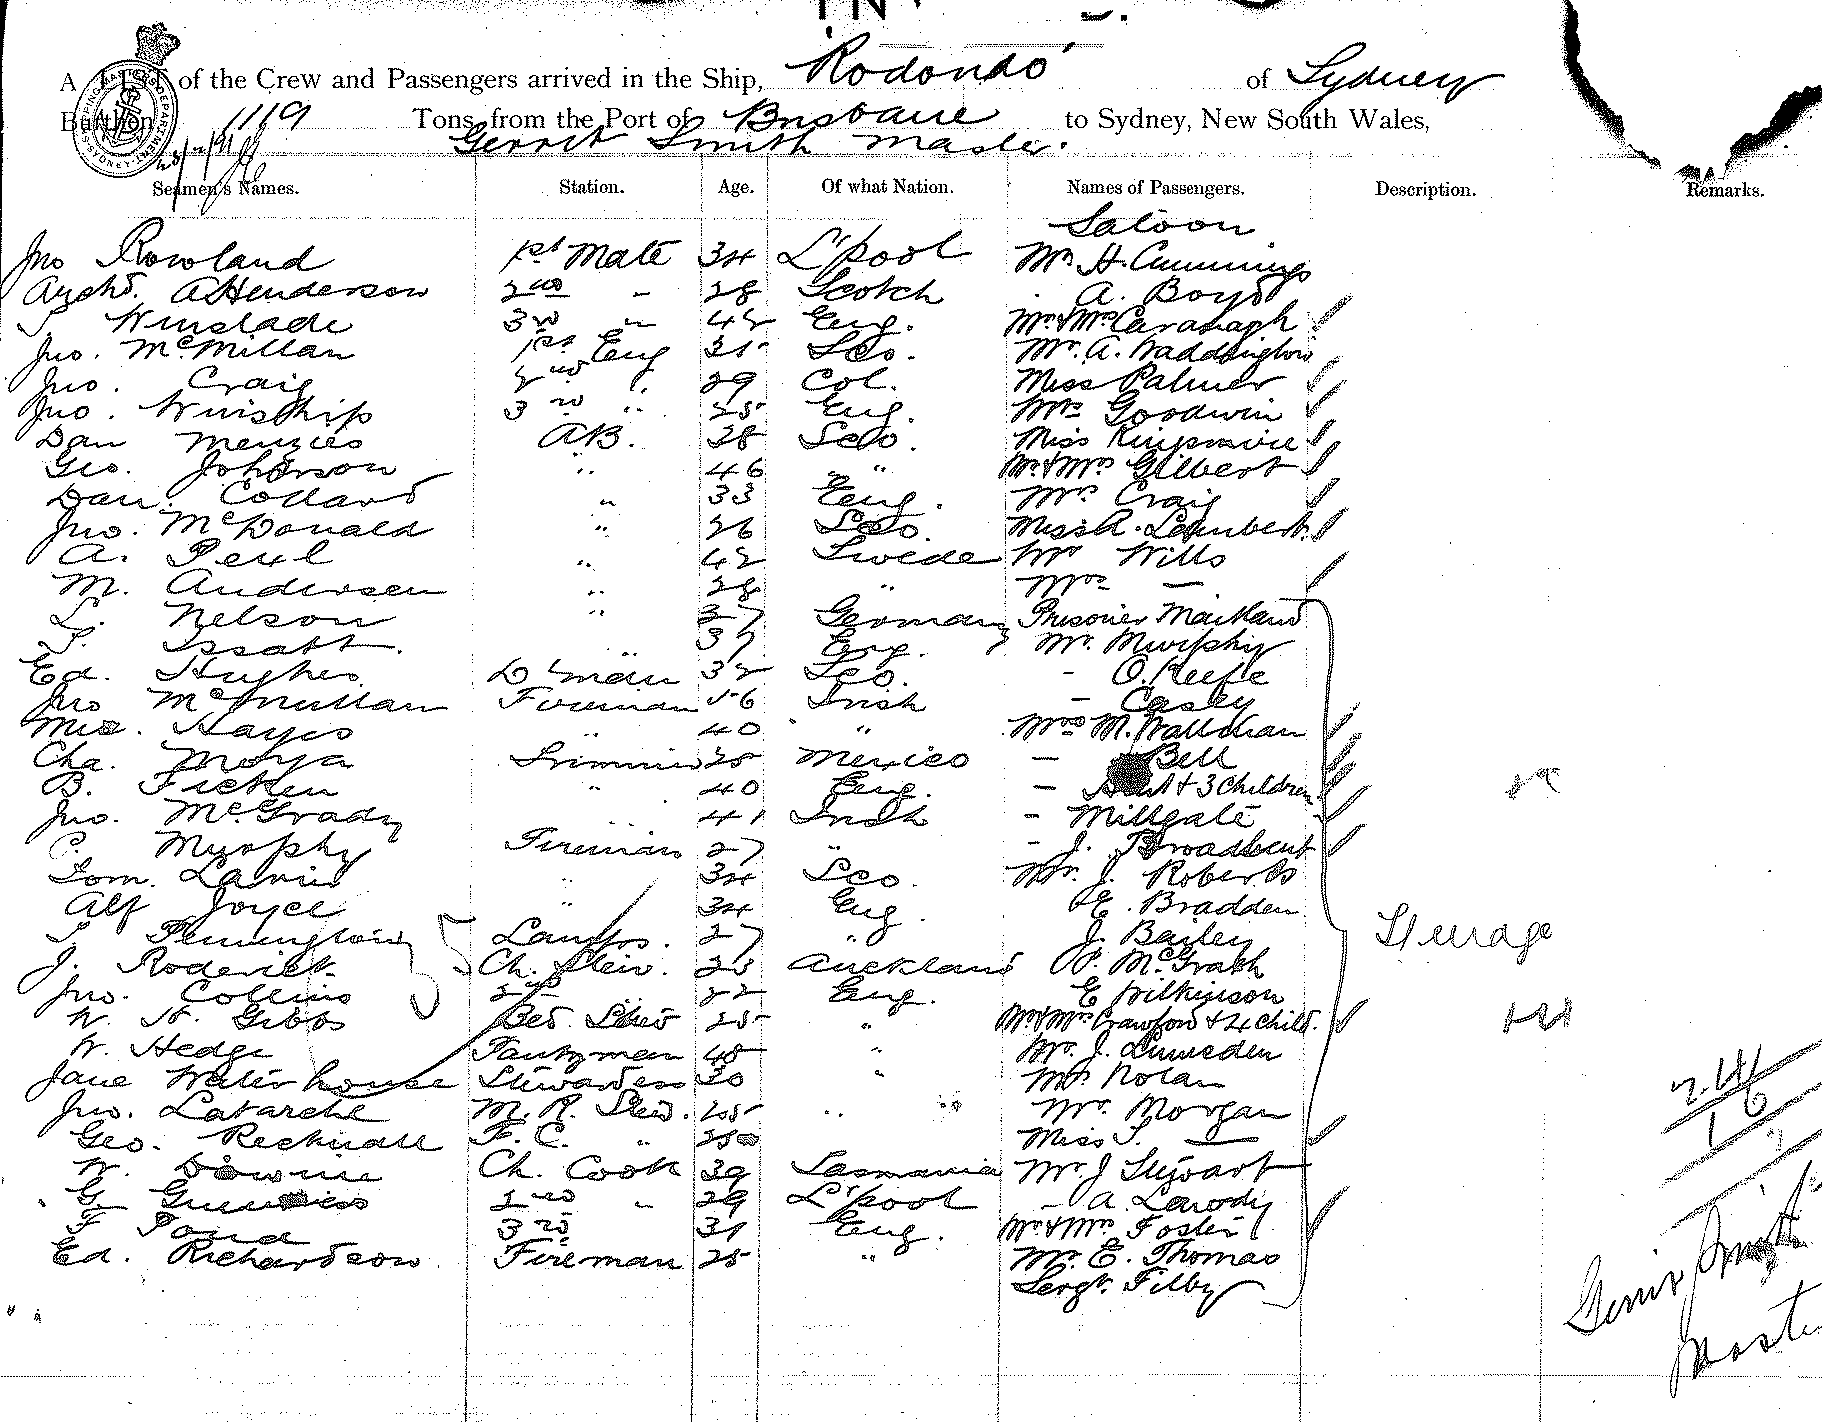 A LIST of the Crew and Passengers arrived in the Ship, 'Rodondo' of Sydney
Burthen 1119 Tons, from the Port of Brisbane to Sydney, New South Wales,
Gerrit Smith Master.
Seamen's Names. Station. Age. Of what Nation. Names of Passengers. Description. Remarks.
Saloon
Jno Rowland 1st Mate 34 L'pool Mr H. Cummings
Archd. A Henderson 2nd " 28 Scotch A. Boyd
S. Winslade 3rd " 42 Eng. Mr & Mrs Cavanagh
Jno. McMillan 1st Eng 35 Sco. Mr. A. Waddington
Jno. Craig 2nd " 29 Col. Miss Palmer
Jno. Winship 3rd " 25 Eng. Mrs Goodwin
Dan Menzies AB. 28 Sco. Miss
Geo. Johnson " 46 " Mr & Mrs Gilbert
Dan. Collard " 33 Eng. Mrs Craig
Jno. McDonald " 26 Sco. Miss A. Lambert
A. " 42 Swede Mr Wills
M. Andersen " 28 " Mrs —
L. Nelson " 27 German Prisoner Maitland
S. Issatt. " 37 Eng. Mr. Murphy
Ed. Hughes D'man 32 Sco. - O'Keefe
Jno McMullan Fireman 56 Irish - Casey
Mic. Hayes " 40 " Mrs M. Wallikan
Cha. Moya Trimmer 25 Mexico — Bell
B. Ficken " 40 Eng. — & 3 Children
Jno. McGrady " 41 Irish - Millgate
C. Murphy Fireman 27 " - J. Broadbent
Tom. " 34 Sco. Mr. J. Roberts
Alf Joyce " 34 Eng. E. Bradden
S. Pennington Lamps. 27 " J. Bailey
Steerage
J. Roderick Ch. Stew. 28 Auckland P. McGrath
Jno. Collins 2nd 22 Eng. E Wilkinson
W. H. Gibbs Bed. Stew 25 " Mr & Mrs Crawford & 4 Child.
W. Hedge Pantryman 48 " Mr. J. Lumsden
Jane Waterhouse Stewardess 30 " Mr Nolan
Jno. Latarche M. R. Stew. 25 " " Mr. Morgan
Geo. F. C. " 25 Miss S. —
W. Downie Ch. Cook 39 Tasmania Mr J Stewart
G 2nd " 29 L'pool - A.
F Pond 3rd 31 Eng. Mr & Mrs Foster
Ed. Richardson Fireman 25 " Mr. E. Thomas
Sergt. Filby
Gerrit Smith
Master